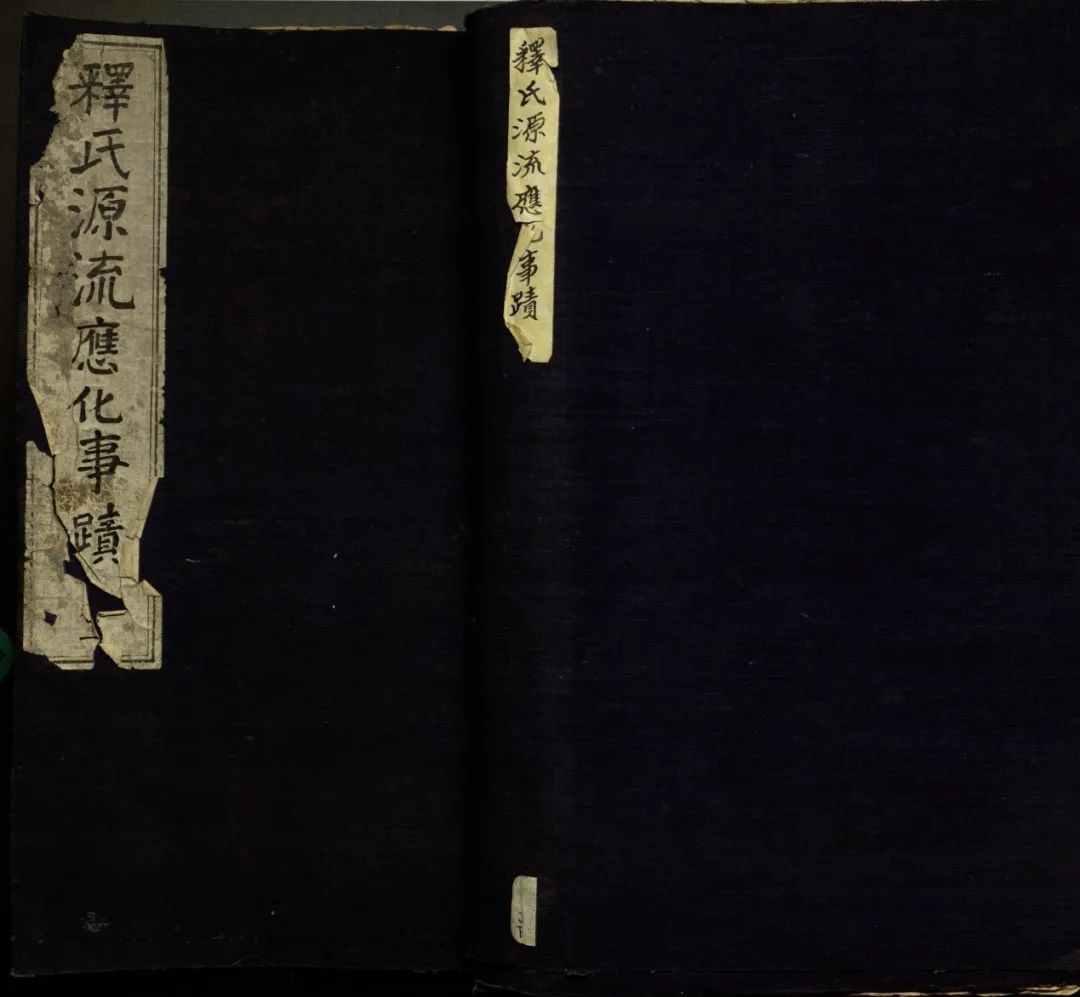 釋氏源流應化事蹟
釋氏源流應事蹟